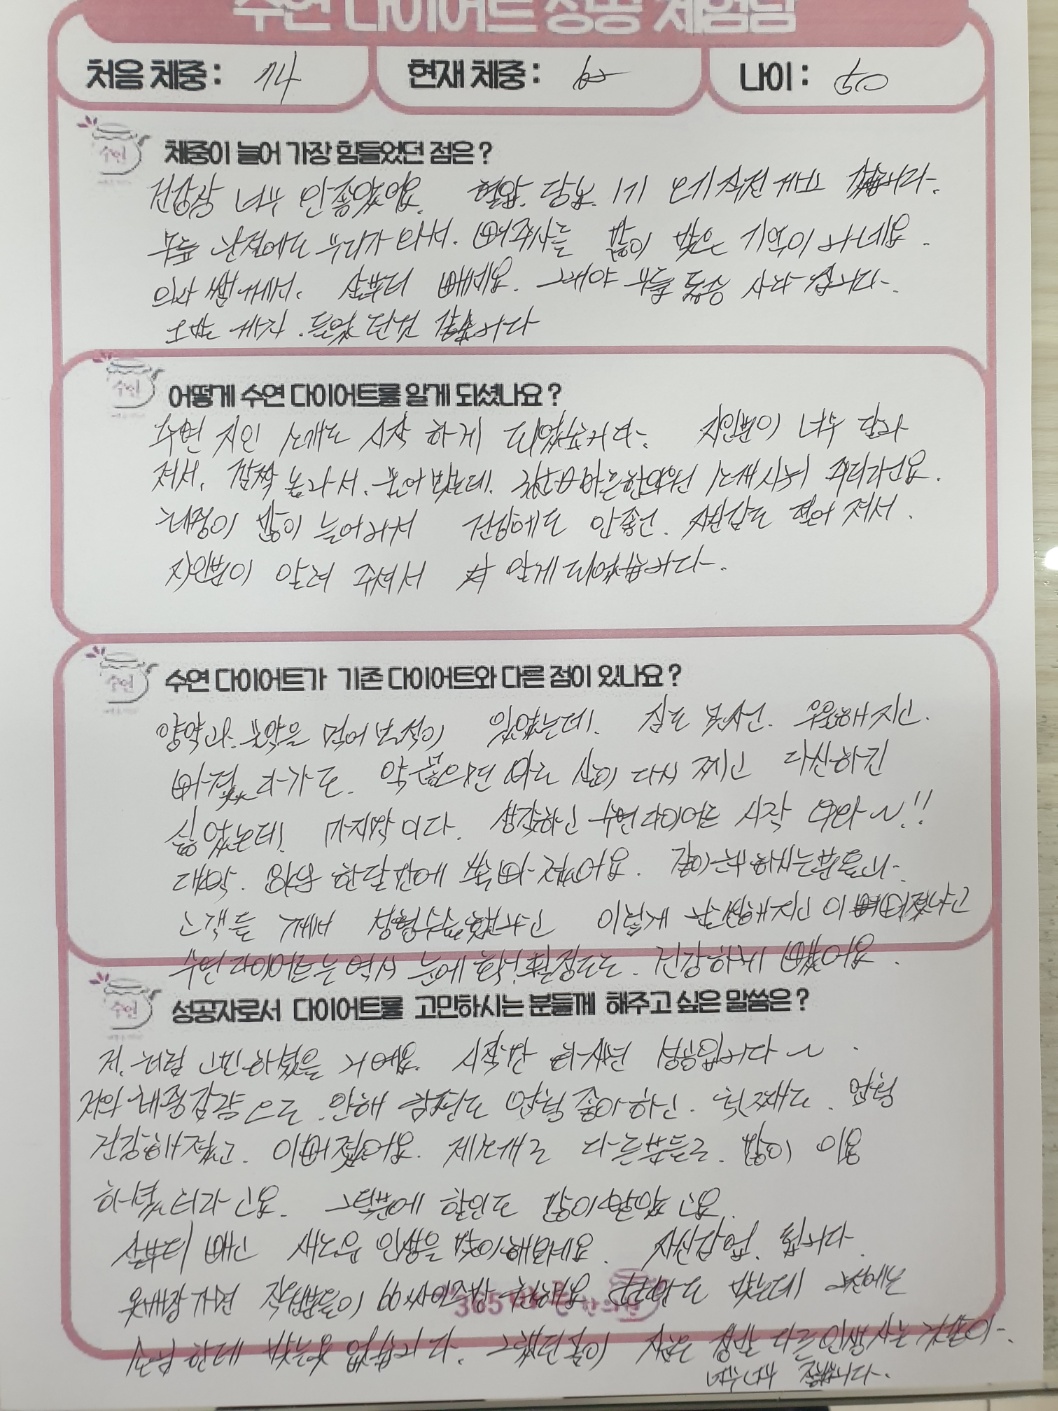 수연 다이어트 성공 체험담
처음 체중 : 74 현재 체중 : 나이 : 50
체중이 늘어 가장 힘들었던 점은?
건강상 너무 안좋았어요. 혈압. 당뇨. 1기 오기직전 같습니다.
무릎 관절에도 무리가 와서. 뼈주사를 많이 맞은 기억이 나네요.
의사 쌤께서. 살부터 빼세요. 그래야 무릎
수연
어떻게 수연 다이어트를 알게 되셨나요?
우연 지인 소개로 시작 하게 되었습니다. 지인분이 너무 달라
져서. 깜짝 놀라서. 물어 봤는데. 바른한의원 소개시켜 주더라고요.
체중이 많이 늘어나서 건강에도 안좋고. 자신감도 떨어 져서.
지인분이 알려 주셔서 알게 되었습니다.
수연
수연 다이어트가 기존 다이어트와 다른 점이 있나요?
양약과. 한약을 먹어 본적이 있었는데. 잠도 못자고. 우울해지고.
빠졌다가도. 약 끊으면 바로 살이 다시 찌고 다신하긴
싫었는데. 마지막이다. 생각하고 수연다이어트 시작 와와~!!
대박. 한달 만에 쏙 빠졌어요. 같이근무하시는분들과
고객들 께서 성형수술했냐고 이렇게 날씬해지고 이뻐졌냐고
수연다이어트는 역시 눈에 확! 띌정도로. 건강하게 뺐어요.
수연
성공자로서 다이어트를 고만하시는 분들께 해주고 싶은 말씀은?
저. 처럼 고민하셨을 거예요. 시작만 하시면 성공입니다~.
저의 체중감량으로. 인해 남편도 엄청 좋아하고. 첫째도. 엄청
건강해졌고. 이뻐졌어요. 제소개로 다른분들도. 많이 이용
하셨더라고요. 그덕분에 할인도 많이 받았고요.
살부터 빼고 새로운 인생을 맞이해보세요. 자신감업. 됩니다.
옷매장 가면 직원분들이 66싸이즈 맞는데 그전에는
365 한의원
손님 한테 맞는옷 없습니다. 그랬던 지금은 정말 다른인생 사는 것같아.
너무너무 좋습니다.